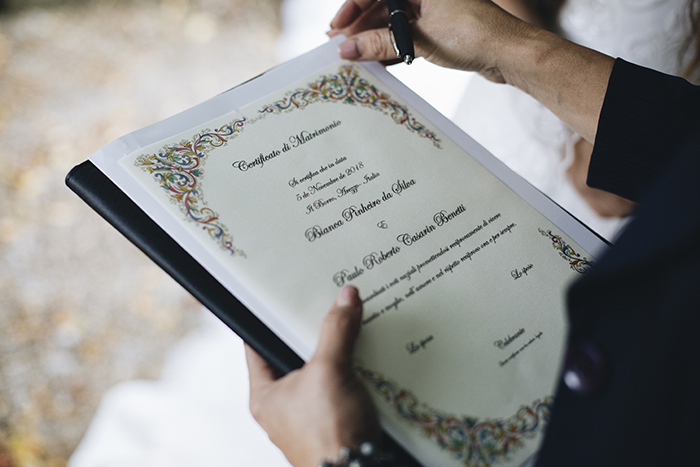 Certificato di Matrimonio
Si certifica che in data
5 de Novembre de 2018
Il Borro, Arezzo - Italia
Bianca Pinheiro da Silva
E
Paulo Roberto Casarin Benetti
i voti nuziali promettendosi reciprocamente di vivere
e moglie, nell'amore e nel rispetto reciproco ora e per sempre.
Lo sposo
La sposa
Celebrante